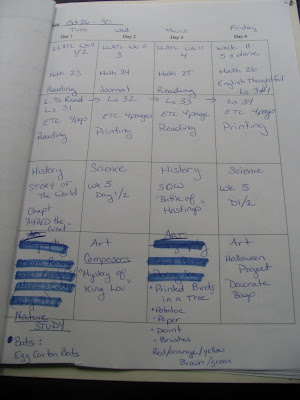 Oct 26 - 30
Tues Wed Thurs Friday
Day 1 Day 2 Day 3 Day 4
LLATL Wk 11 1/2
Math 23
Reading
LLATL Wk 11 3
Math 24
Journal
LLATL Wk 11 4
Math 25
Reading
Week 11 5 & done
Math 26
English Thoughtful
L To Read → Ls 32 → Ls 33 → Ls 34
Ls 31
ETC 4pgs
Reading
ETC 4pages
Printing
ETC 4pages
Reading
ETC 4pages
Printing
History
STORY of
The World
Chapt
"Alfred the Great"
Science
Wk 5
Day 1/2
History
SOW
"Battle of
Hastings"
Science
Wk 5
D1/2
Nature
STUDY
• Bats:
Egg Carton Bats
Art
Composers
"Mystery of
King Lou"
Art
• Printed Birds
in a Tree
• Potatoe
• Paper
• paint
• Brushes
Red/orange/yellow
Brown/green
Art
Halloween
Project
Decorate
Bags